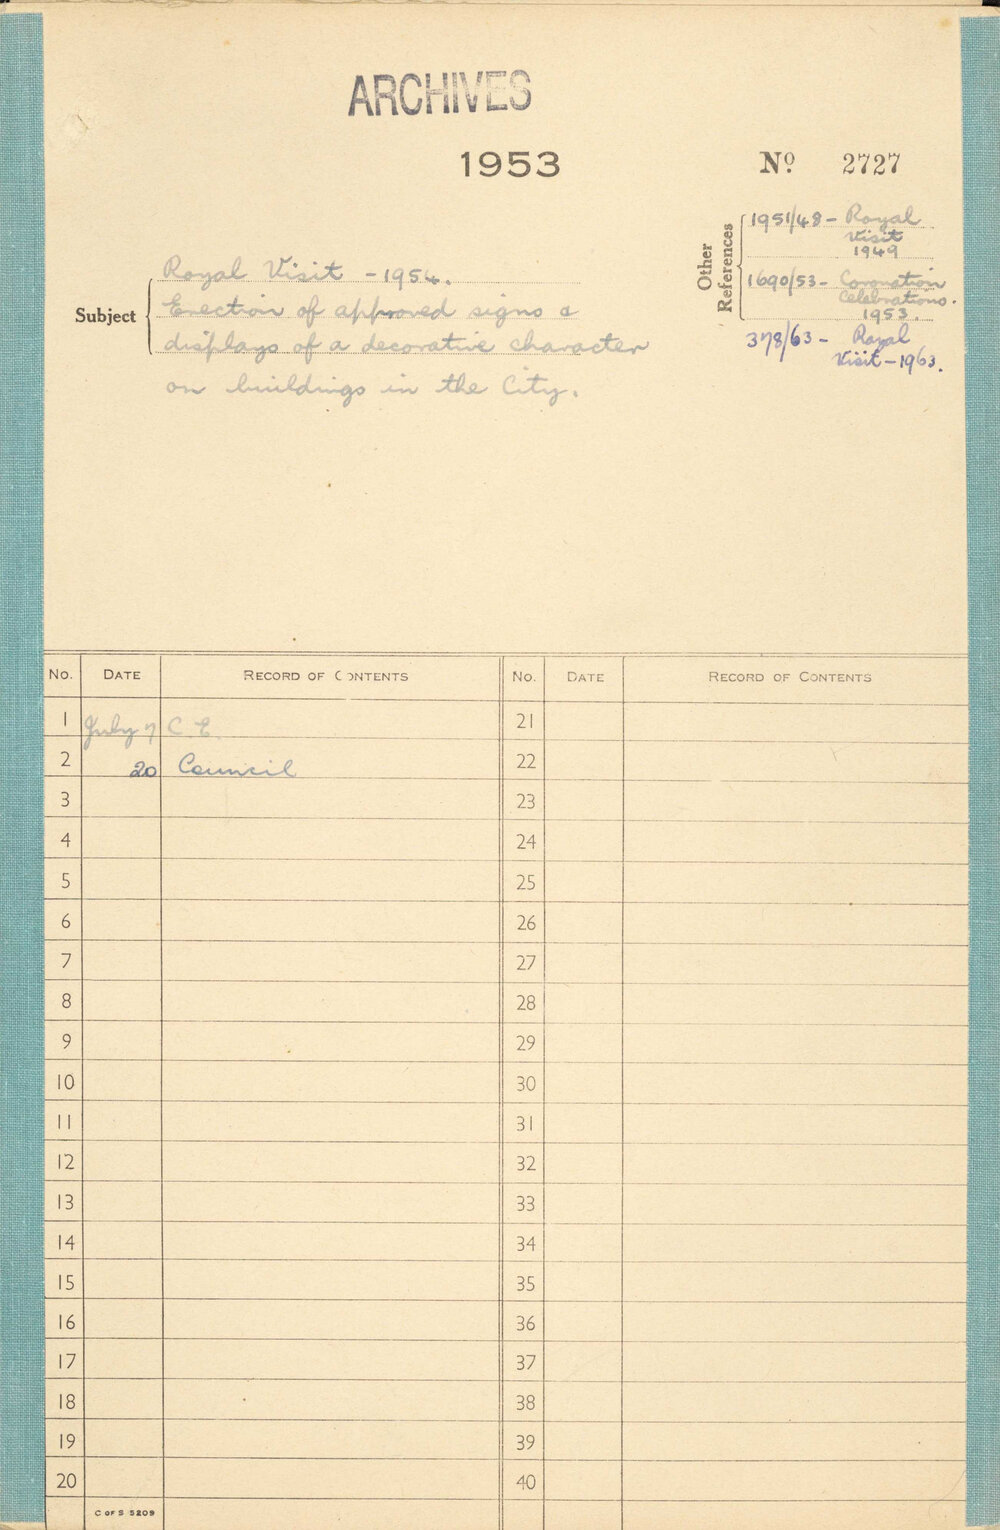 ARCHIVES
1953
No 2727
Other References
1951/48 - Royal
Visit
1949
1690/53 - Coronation
Celebrations.
1953.
378/63 - Royal
Visit - 1963.
Subject
Royal Visit - 1954.
Erection of approved signs &
displays of a decorative character
on buildings in the City.
No. DATE RECORD OF CONTENTS No. DATE RECORD OF CONTENTS
1 July 7 C.E. 21
2 20 Council 22
3 23
4 24
5 25
6 26
7 27
8 28
9 29
10 30
11 31
12 32
13 33
14 34
15 35
16 36
17 37
18 38
19 39
20 40
C OF S 5209